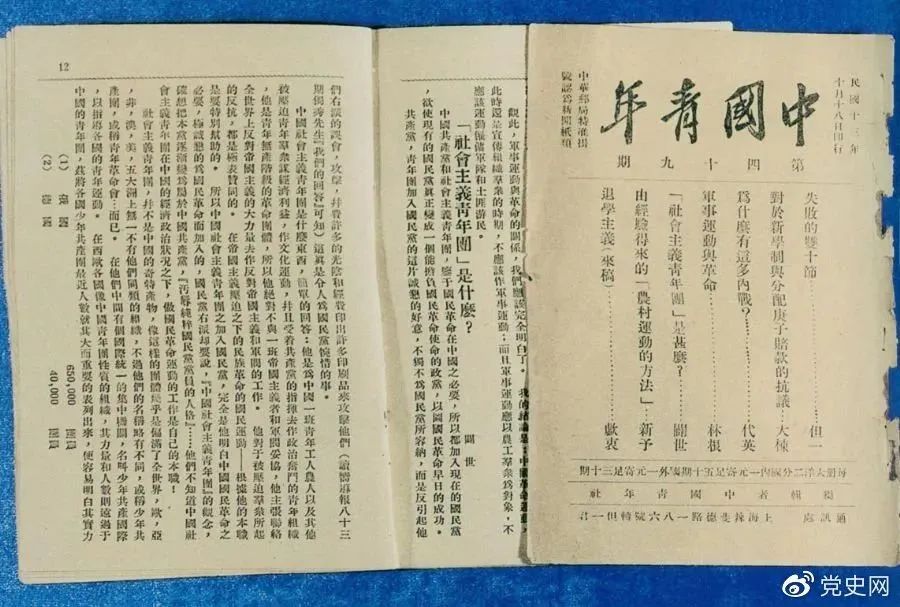 民國十三年
十月十八日印行
中國青年
第四十九期
中華郵局特准掛
號認爲新聞紙類
失敗的雙十節……但一
對於新學制與分配庚子賠款的抗議……大棟
爲什麼有這多內戰？……代英
軍事運動與革命……林根
「社會主義青年團」是甚麼？……闢世
由經驗得來的「農村運動的方法」……新予
退學主義……來稿……獻衷
每册大洋二分國內一元寄足五十期國外一元寄足三十期
編輯者中國青年社
通訊處 上海辣斐德路一八六號轉但一君
觀此，軍事運動與革命的關係，我們應該完全明白了。我的結論是：中國革命運動，
此時還是宣傳組織羣衆的時期，不應該作軍事運動；而且軍事運動應以農工羣衆爲對象，不
應該運動僱傭軍隊和土匪游民。
「社會主義青年團」是什麼？
闢世
中國共產黨和社會主義青年團，鑒于國民革命在中國之必要，所以都加入現在的國民黨
，欲使現有的國民黨眞正變成一個能擔負國民革命使命的政黨，以圖國民革命早日的成功。
共產黨，青年團加入國民黨的這片誠懇的好意，不獨不爲國民黨所容納，而是反引起他
12
們右派的誤會，攻擊，幷費許多的光陰和經費印出許多印刷品來攻擊他們（讀嚮導報八十三
期獨秀先生『我們的回答』可知）這眞是令人爲國民黨惋惜的事。
中國社會主義青年團是什麼東西，簡單的回答：他是爲中國一班青年工人農人以及其他
被壓迫青年羣衆謀經濟利益，作文化運動，幷且受着共產黨的指揮去作政治奮鬥的青年組織
，他是青年無產階級的革命團體，所以他絕對不與一班帝國主義者和軍閥妥協，他主張聯絡
全世界上反對帝國主義的大力量去作反對帝國主義和軍閥的工作。他對于被壓迫羣衆所起
的反抗，都是極表贊同的。在帝國主義壓迫之下的民族革命的國民運動——根據他的本職
是要特別幫助的。所以中國社會主義青年團之加入國民黨，完全是他明白中國國民革命之
必要，極誠懇的爲國民革命而加入的，國民黨右派却要說，『中國社會主義青年團』的觀念，
確想把本黨逐漸變爲屬於中國共產黨，『汚辱純粹國民黨黨員的人格』——他們不知道中國社
會主義青年團在中國的經濟政治狀況之下，做國民革命運動的工作是自己的本職！
社會主義青年團，幷不是中國的奇特產物，像這樣的團體幾乎是偏滿了全世界，歐，亞
，非，澳，美，五大洲上無一不有他們同類的組織，不過他們的名稱略有不同，或稱少年共
產團，或稱青年革命會…而已。在他們中間有個國際統一的集中機關，名叫少年共產國際
，以指導各國的青年運動。在西歐各國像中國青年團性質的組織，其力量和人數則遠過于
中國的青年團，茲將各國少年共產團最近人數就其大而重要的表列出來，便容易明白其實力
(1) 650,000
(2) 40,000
党史网